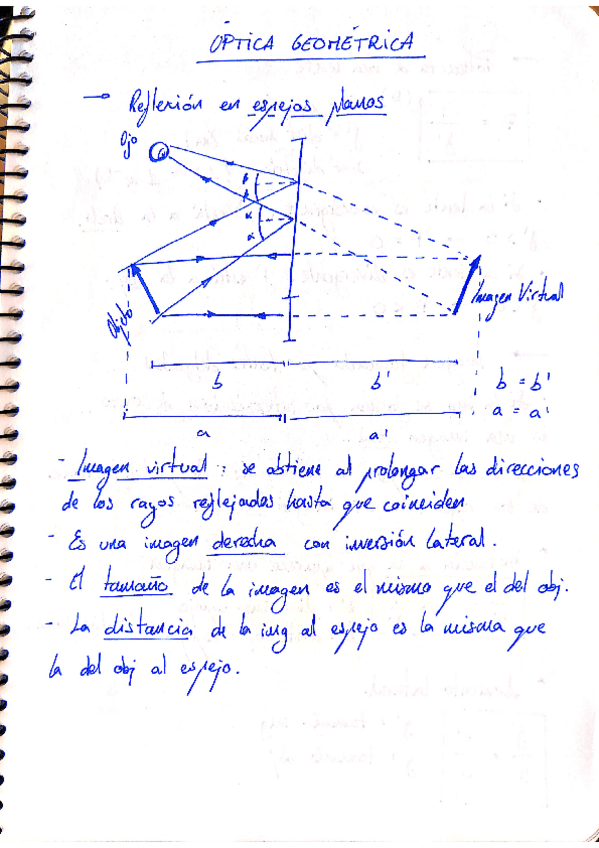 ÓPTICA GEOMÉTRICA
→ Reflexión en espejos planos
Ojo
β
β
α
α
Objeto
Imagen Virtual
b
b'
b = b'
a = a'
a
a'
- Imagen virtual: se obtiene al prolongar las direcciones
de los rayos reflejados hasta que coinciden
- Es una imagen derecha con inversión lateral.
- El tamaño de la imagen es el mismo que el del obj.
- La distancia de la img al espejo es la misma que
la del obj al espejo.